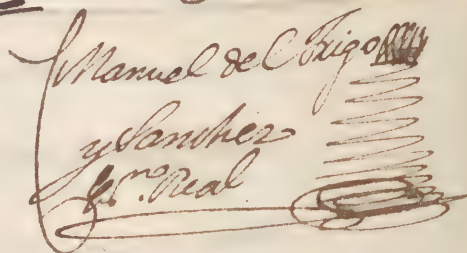 Manuel del Trigo
y Sanchez
Es.no Real